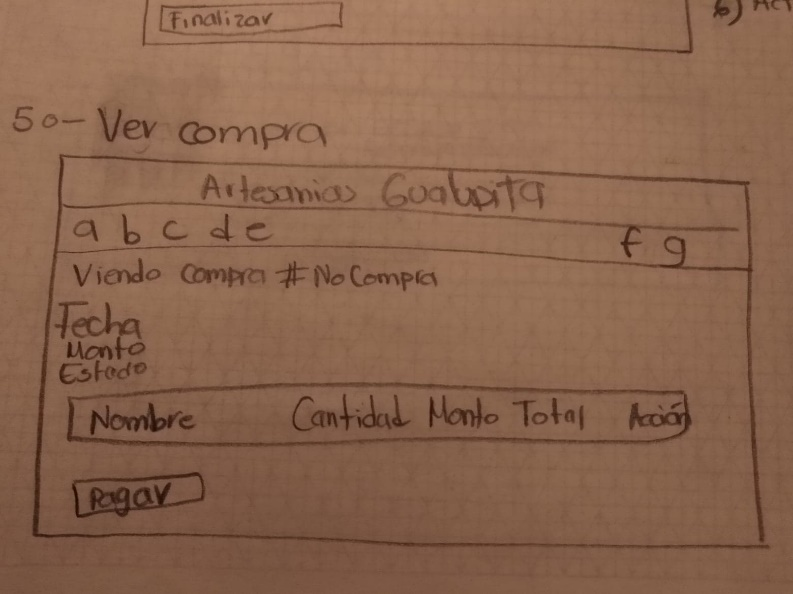 Finalizar
6) Act
50- Ver compra
Artesanias Gualupita
a b c d e f g
Viendo compra #NoCompra
Fecha
Monto
Estado
Nombre Cantidad Monto Total Acción
Pagar